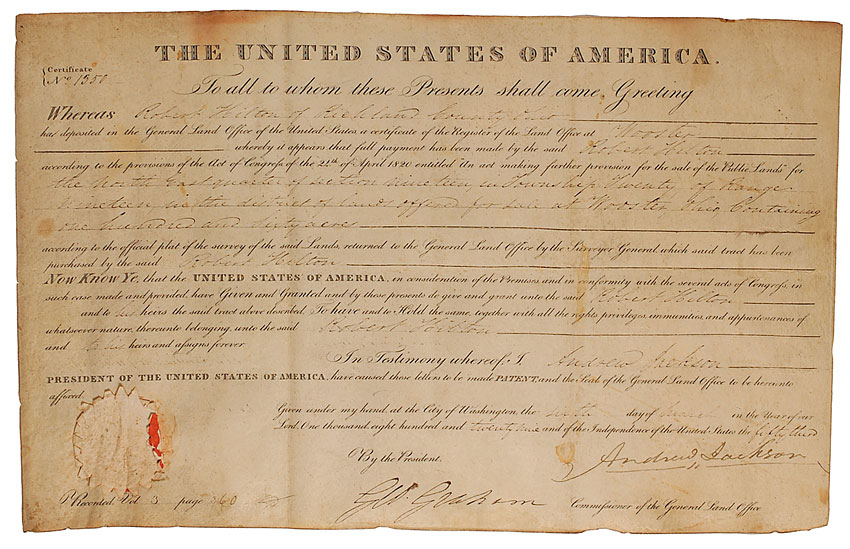 THE UNITED STATES OF AMERICA.
Certificate
No. 1350
To all to whom these Presents shall come, Greeting
Whereas Robert Hilton of Richland County Ohio
has deposited in the General Land Office of the United States a certificate of the Register of the Land Office at Wooster
whereby it appears that full payment has been made by the said Robert Hilton
according to the provisions of the Act of Congress of the 24th of April 1820 entitled "An act making further provision for the sale of the Public Lands" for
the North East quarter of Section nineteen, in Township Twenty, of Range
Nineteen in the district of lands offered for sale at Wooster Ohio Containing
one hundred and sixty acres
according to the official plat of the survey of the said Lands, returned to the General Land Office by the Surveyor General which said tract has been
purchased by the said Robert Hilton
Now Know Ye, that the UNITED STATES OF AMERICA, in consideration of the Premises, and in conformity with the several acts of Congress, in
such case made and provided, have Given and Granted and by these presents do give and grant unto the said Robert Hilton
and to his heirs the said tract above described, To have and to Hold the same, together with all the rights, privileges, immunities, and appurtenances of
whatsoever nature, thereunto belonging, unto the said Robert Hilton
and to his heirs and assigns forever
In Testimony whereof I, Andrew Jackson
PRESIDENT OF THE UNITED STATES OF AMERICA, have caused these letters to be made PATENT, and the Seal of the General Land Office to be hereunto
affixed.
Given under my hand, at the City of Washington, the day of March in the Year of our
Lord, One thousand, eight hundred and twenty nine and of the Independence of the United States the fifty third
By the President. Andrew Jackson
Recorded, Vol 3 page 60 G. W. Graham Commissioner of the General Land Office